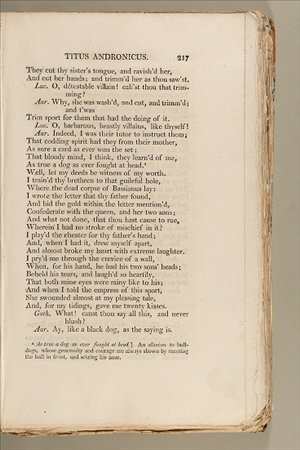 TITUS ANDRONICUS. 217
They cut thy sister's tongue, and ravish'd her,
And cut her hands; and trimm'd her as thou saw'st.
Luc. O, détestable villain! call'st thou that trim-
ming?
Aar. Why, she was wash'd, and cut, and trimm'd;
and t'was
Trim sport for them that had the doing of it.
Luc. O, barbarous, beastly villains, like thyself!
Aar. Indeed, I was their tutor to instruct them;
That codding spirit had they from their mother,
As sure a card as ever won the set;
That bloody mind, I think, they learn'd of me,
As true a dog as ever fought at head.
Well, let my deeds be witness of my worth.
I train'd thy brethren to that guileful hole,
Where the dead corpse of Bassianus lay:
I wrote the letter that thy father found,
And hid the gold within the letter mention'd,
Confederate with the queen, and her two sons;
And what not done, that thou hast cause to rue,
Wherein I had no stroke of mischief in it?
I play'd the cheater for thy father's hand;
And, when I had it, drew myself apart,
And almost broke my heart with extreme laughter.
I pry'd me through the crevice of a wall,
When, for his hand, he had his two sons' heads;
Beheld his tears, and laugh'd so heartily,
That both mine eyes were rainy like to his;
And when I told the empress of this sport,
She swounded almost at my pleasing tale,
And, for my tidings, gave me twenty kisses.
Goth. What! canst thou say all this, and never
blush?
Aar. Ay, like a black dog, as the saying is.
As true a dog as ever fought at head.] An allusion to bull-
dogs, whose generosity and courage are always shown by meeting
the bull in front, and seizing his nose.